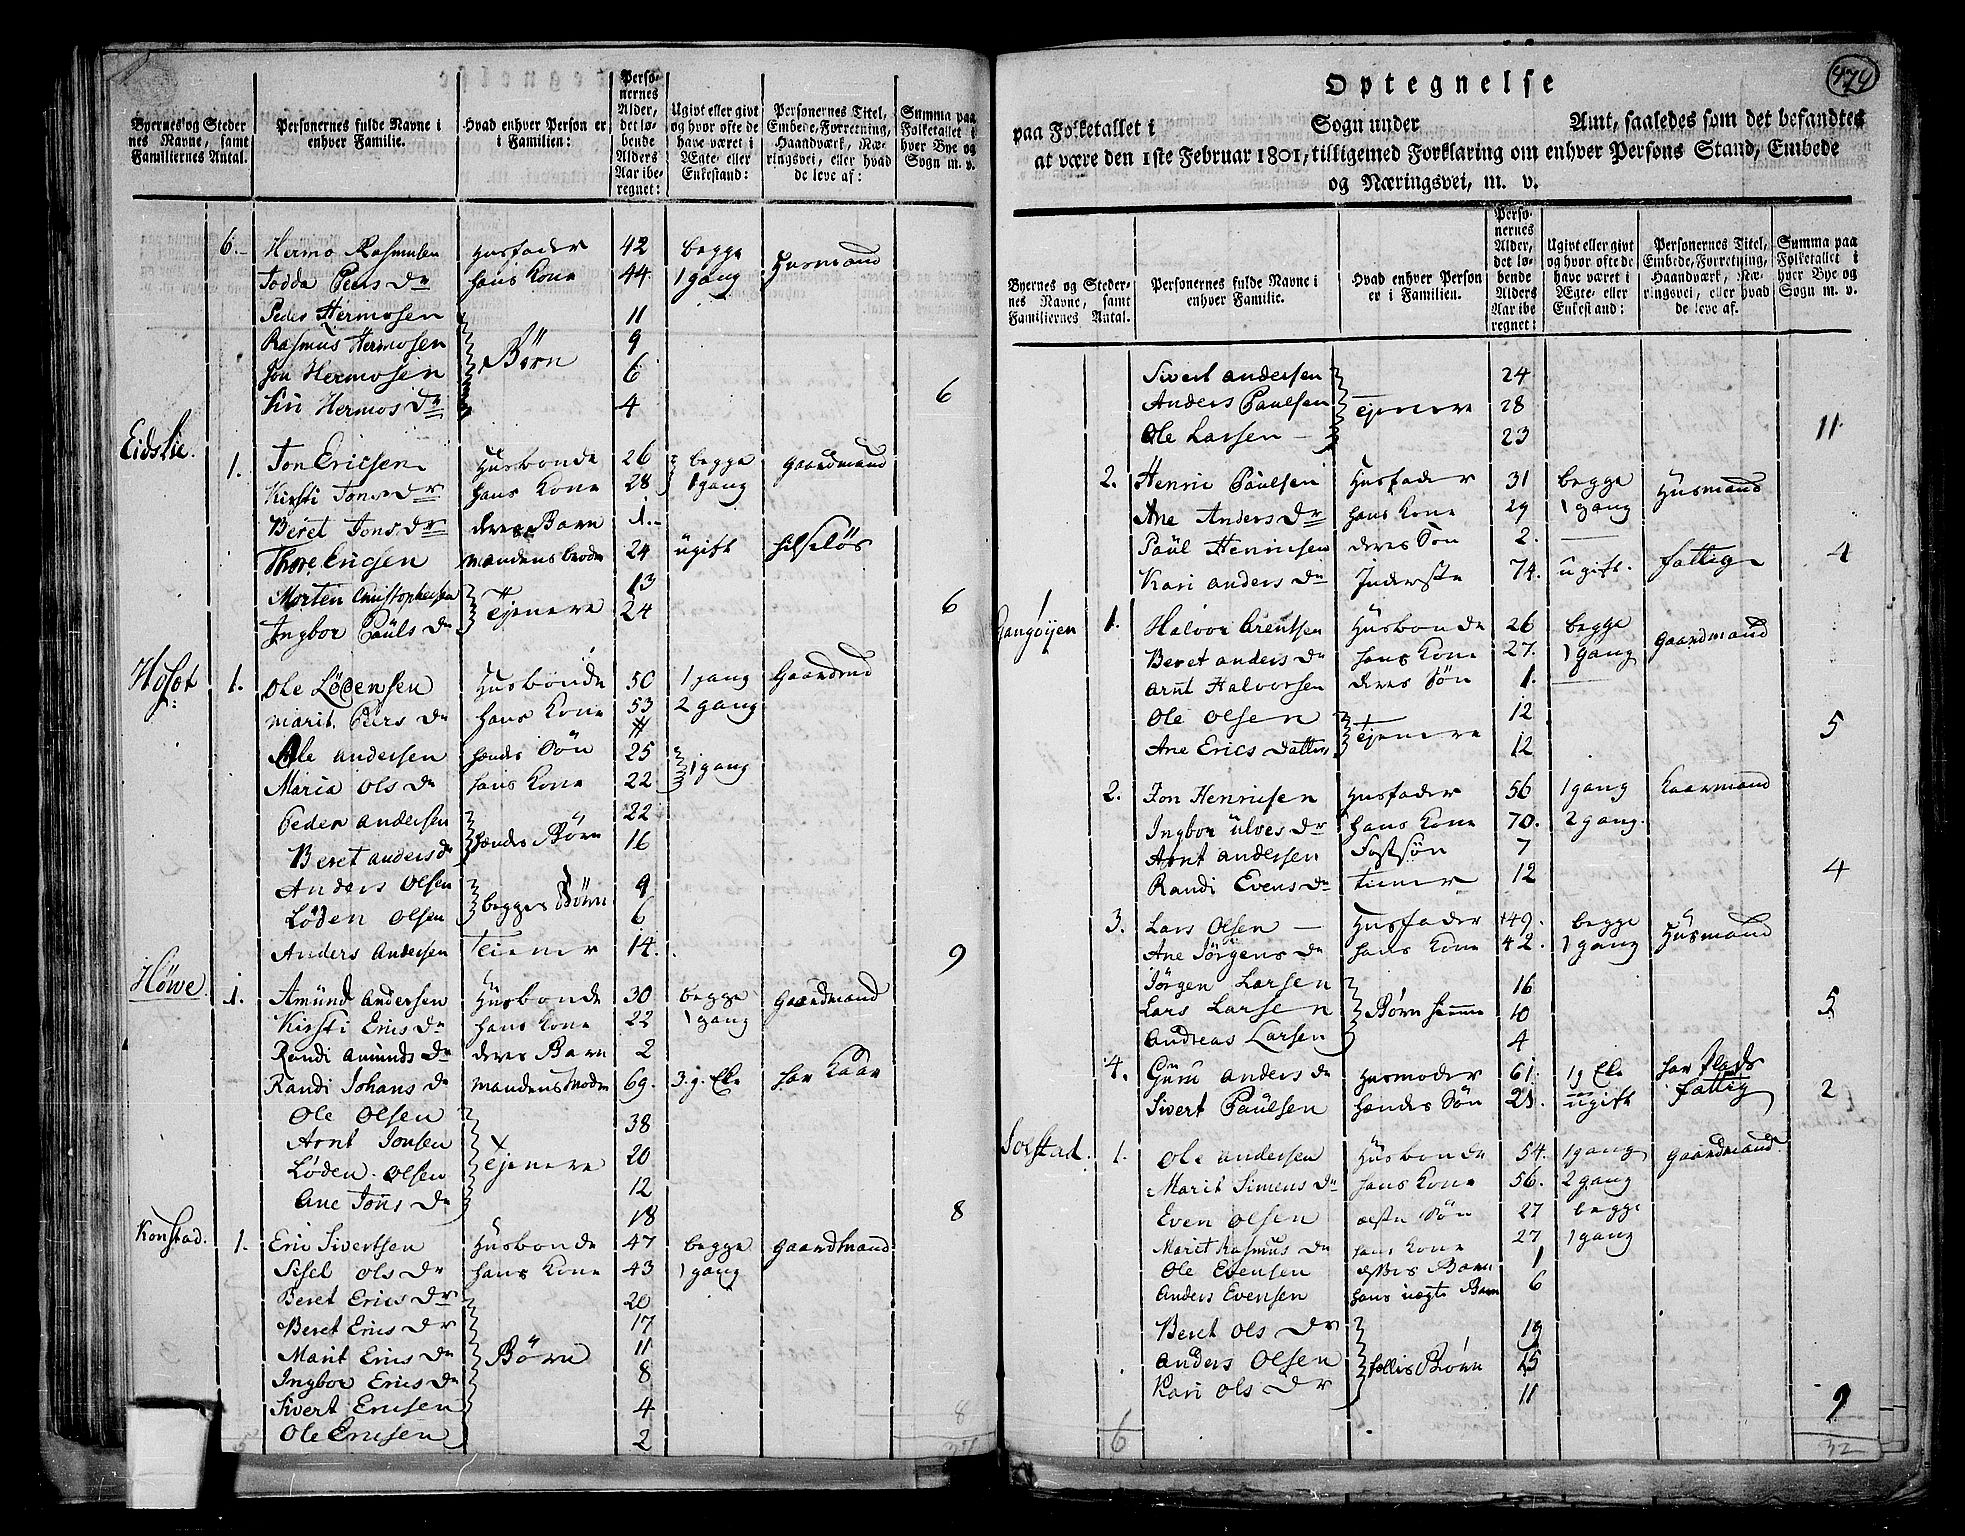 Byernes og Steder
nes Navne, samt
Familiernes Antal.
Personernes fulde Navne i
enhver Familie.
Hvad enhver Person er
i Familien:
Perso-
nernes
Alder,
det lø-
bende
Alders
Aar ibe-
regnet:
Ugivt eller givt
og hvor ofte de
have været i
Ægte- eller
Enkestand:
Personernes Titel,
Embede, Forretning,
Haandværk, Næ-
ringsvei, eller hvad
de leve af:
Summa paa
Folketallet i
hver Bye og
Sogn m. v.
6. Hermo Rasmusen Husfader 42 begge Husmand
Todda Peers Dr hans Kone 44 1 gang
Peder Hermosen 11
Rasmus Hermosen 9
Jon Hermosen Børn 6
Kiri Hermos Dr 4 6
Eidslie. 1. Jon Ericsen Husbonde 26 begge Gaardmand
Kirsti Jons Dr hans Kone 28 1 gang
Beret Jons Dr deres Barn 1.
Thore Ericsen mandens broder 24 ugift
Morten Christophersen 13
Ingbor Pauls Dr Tjenere 24 6
Holot 1. Ole Lødensen Husbonde 50 1 gang
Marit Peers Dr hans Kone 53 2 gang
Ole Andersen hendes Søn 25
Maria Ols Dr hans Kone 22 1 gang
Peder Andersen 22
Beret Anders Dr hendes Børn 16
Anders Olsen 9
Løden Olsen begges Børn 6
Anders Andersen Tiener 14. 9
Høwe 1. Amund Andersen Husbonde 30 begge Gaardmand
Kirsti Erics Dr hans Kone 22 1 gang
Randi Amunds Dr deres Barn 2
Randi Johans Dr mandens Moder 69. 3. g. Eke har Kaar
Ole Olsen 38
Arnt Jonsen 20
Løden Olsen Tjenere 12
Ane Jons Dr 18 8
Konstad. 1. Eric Sivertsen Husbonde 47 begge Gaardmand
Sisel Ols Dr hans Kone 43 1 gang
Beret Erics Dr 20
Beret Erics Dr 17
Marit Erics Dr Børn 11
Ingbor Erics Dr 8
Sivert Ericsen 4 8
Ole Ericsen 2 37
474
Optegnelse
paa Folketallet i Sogn under Amt, saaledes som det befandtes
at være den 1ste Februar 1801, tilligemed Forklaring om enhver Persons Stand, Embede
og Næringsvei, m. v.
Byernes og Steder-
nes Navne, samt
Familiernes Antal.
Personernes fulde Navne i
enhver Familie.
Hvad enhver Person
er i Familien.
Perso-
nernes
Alder,
det lø-
bende
Alders
Aar ibe
regnet:
Ugivt eller givt
og hvor ofte de
have været i
Ægte- eller
Enkestand:
Personernes Titel,
Embede, Forretning,
Haandværk, Næ-
ringsvei, eller hvad
de leve af.
Summa paa
Folketallet i
hver Bye og
Sogn m. v.
Sivert Andersen 24
Anders Paulsen Tjenere 28
Ole Larsen 23 11
2. Henric Paulsen Husfader 31 begge Husmand
Ane Anders Dr hans Kone 29 1 gang
Paul Henricsen deres Søn 2.
Kari Anders Dr Inderste 74. ugift. fattig 4
Gangøyen 1. Halvor Arentsen Husbonde 26 begge Gaardmand
Beret Anders Dr hans Kone 27. 1 gang
Arnt Halvorsen deres Søn 1.
Ole Olsen 12
Ane Erics Datter Tjenere 12 5
2. Jon Henricsen Husfader 56 1 gang Kaarmand
Ingbor Ulves Dr hans Kone 70. 2 gang.
Arnt Andersen Fostsøn 7
Randi Evens Dr Tiener 12 4
3. Lars Olsen Husfader 49. begge Husmand
Ane Jørgens Dr hans Kone 42. 1 gang
Jørgen Larsen 16
Lars Larsen Børn 10 5
Andreas Larsen 4
4. Guru Anders Dr Husmoder 61. 1 g Eke har Plads
Sivert Paulsen hendes Søn 21. ugift fattig 2
Solstad. 1. Ole Andersen Husbonde 54. 1 gang Gaardmand.
Marit Simens Dr hans Kone 56. 2 gang
Even Olsen ælste Søn 27 begge
Marit Rasmus Dr hans Kone 27 1 gang
Ole Evensen Barn 1
Anders Evensen hans uægte Barn 6
Beret Ols Dr 19
Anders Olsen fælles Børn 15
Kari Ols Dr 11 9
6 32